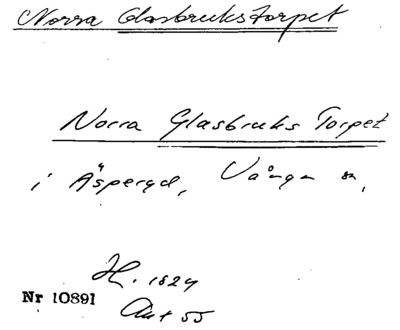 Norra Glasbrukstorpet
Norra Glasbruks Torpet
i Äspered, Vånga sn,
H. 1824
Nr 10891
Ant 55